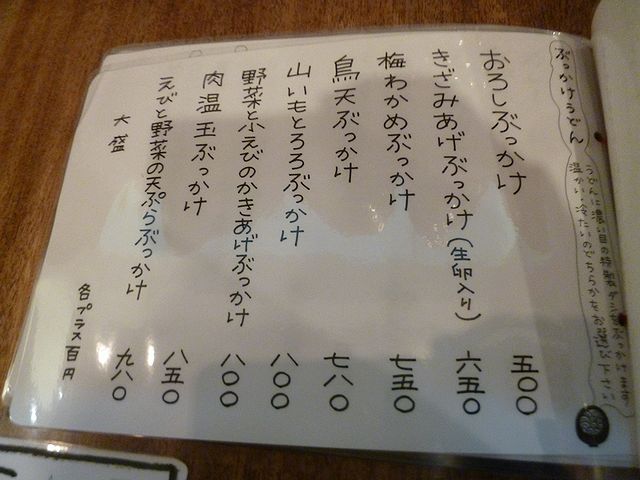 ぶっかけうどん
うどんに濃い目の特製ダシをぶっかけます
温かい、冷たいのどちらかをお選び下さい
おろしぶっかけ 五〇〇
きざみあげぶっかけ(生卵入り) 六五〇
梅わかめぶっかけ 七五〇
鳥天ぶっかけ 七八〇
山いもとろろぶっかけ 八〇〇
野菜と小えびのかきあげぶっかけ 八〇〇
肉温玉ぶっかけ 八五〇
えびと野菜の天ぷらぶっかけ 九八〇
大盛 各プラス百円